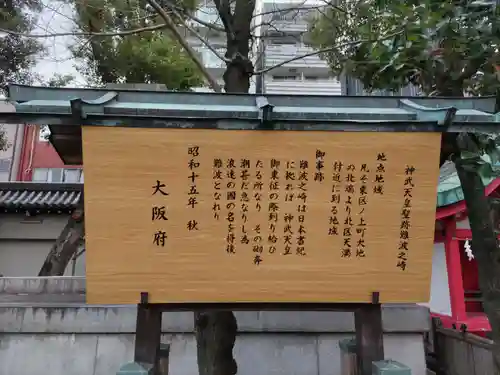 神武天皇聖蹟難波之碕
地点地域
凡そ東区ノ上町大地
の北端より北区天満
付近に到る地域
御事跡
難波之碕は日本書紀
に拠れば 神武天皇
御東征の際到り給ひ
たる所なり その砌奔
潮甚だ急なりし為
浪速の国の名を得後
難波となれり
昭和十五年 秋
大阪府